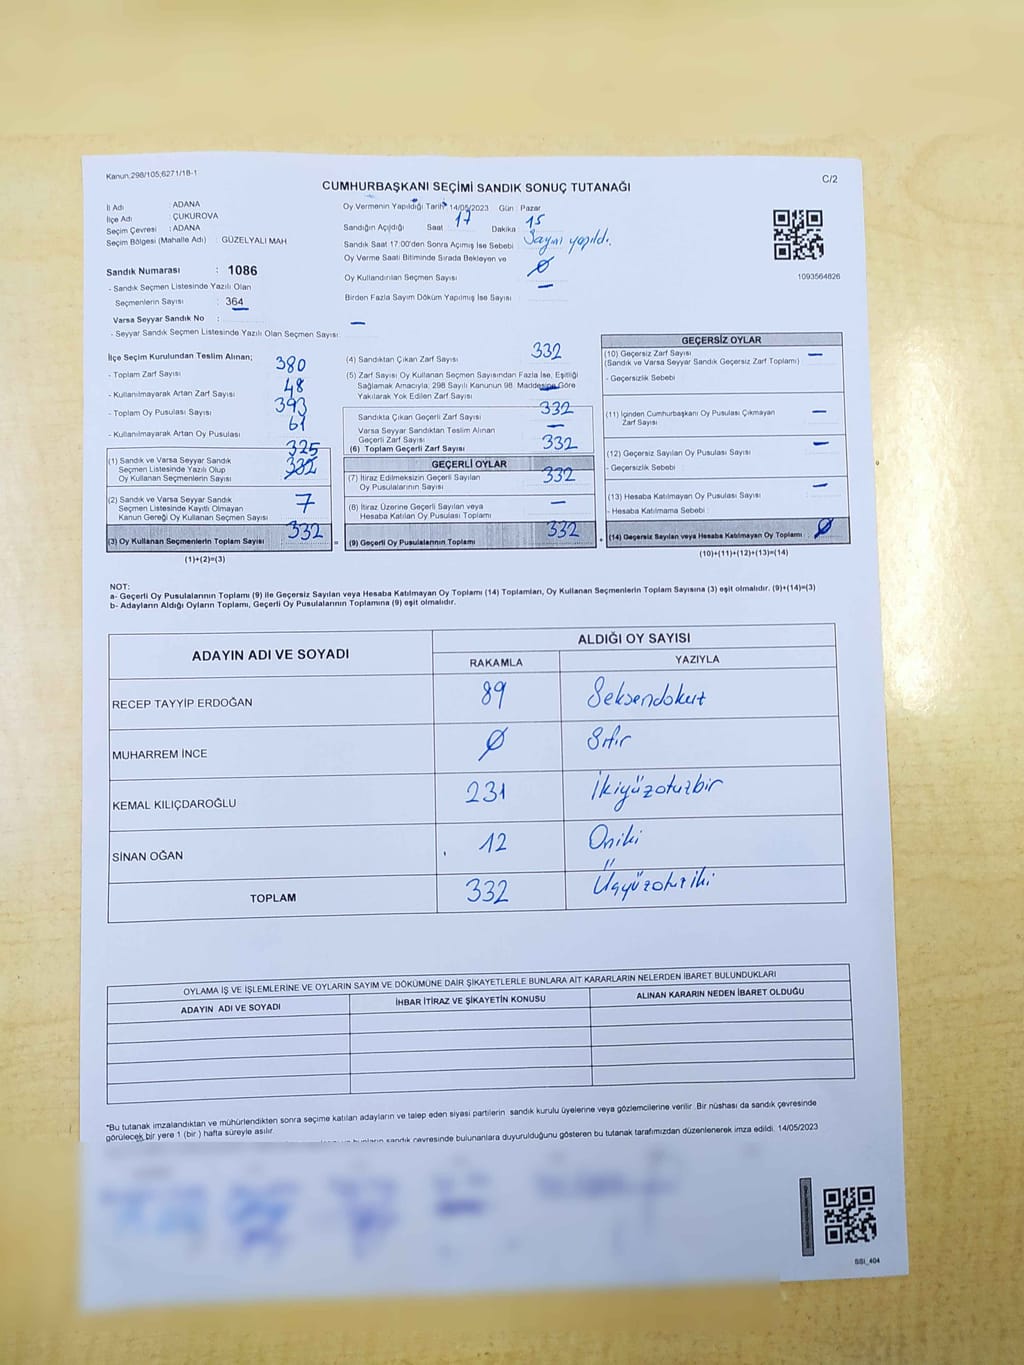 Kanun:298/105;6271/18-1
C/2
CUMHURBAŞKANI SEÇİMİ SANDIK SONUÇ TUTANAĞI
İl Adı : ADANA
İlçe Adı : ÇUKUROVA
Seçim Çevresi : ADANA
Seçim Bölgesi (Mahalle Adı) : GÜZELYALI MAH
Sandık Numarası : 1086
- Sandık Seçmen Listesinde Yazılı Olan
Seçmenlerin Sayısı : 364
Varsa Seyyar Sandık No : —
- Seyyar Sandık Seçmen Listesinde Yazılı Olan Seçmen Sayısı:
Oy Vermenin Yapıldığı Tarih: 14/05/2023 Gün : Pazar
Sandığın Açıldığı Saat 17 Dakika 15
Sandık Saat 17:00'den Sonra Açımış İse Sebebi Sayım yapıldı.
Oy Verme Saati Bitiminde Sırada Bekleyen ve
Oy Kullandırılan Seçmen Sayısı Ø
Birden Fazla Sayım Döküm Yapılmış İse Sayısı —
1093564826
İlçe Seçim Kurulundan Teslim Alınan;
- Toplam Zarf Sayısı 380
- Kullanılmayarak Artan Zarf Sayısı 48
- Toplam Oy Pusulası Sayısı 393
- Kullanılmayarak Artan Oy Pusulası 61
(1) Sandık ve Varsa Seyyar Sandık
Seçmen Listesinde Yazılı Olup
Oy Kullanan Seçmenlerin Sayısı 325 332
(2) Sandık ve Varsa Seyyar Sandık
Seçmen Listesinde Kayıtlı Olmayan
Kanun Gereği Oy Kullanan Seçmen Sayısı 7
(3) Oy Kullanan Seçmenlerin Toplam Sayısı 332
(1)+(2)=(3)
(4) Sandıktan Çıkan Zarf Sayısı 332
(5) Zarf Sayısı Oy Kullanan Seçmen Sayısından Fazla İse, Eşitliği
Sağlamak Amacıyla; 298 Sayılı Kanunun 98. Maddesine Göre
Yakılarak Yok Edilen Zarf Sayısı —
Sandıkta Çıkan Geçerli Zarf Sayısı 332
Varsa Seyyar Sandıktan Teslim Alınan
Geçerli Zarf Sayısı —
(6) Toplam Geçerli Zarf Sayısı 332
GEÇERLİ OYLAR
(7) İtiraz Edilmeksizin Geçerli Sayılan
Oy Pusulalarının Sayısı 332
(8) İtiraz Üzerine Geçerli Sayılan veya
Hesaba Katılan Oy Pusulası Toplamı —
= (9) Geçerli Oy Pusulalarının Toplamı 332
GEÇERSİZ OYLAR
(10) Geçersiz Zarf Sayısı —
(Sandık ve Varsa Seyyar Sandık Geçersiz Zarf Toplamı)
- Geçersizlik Sebebi
(11) İçinden Cumhurbaşkanı Oy Pusulası Çıkmayan
Zarf Sayısı —
(12) Geçersiz Sayılan Oy Pusulası Sayısı —
- Geçersizlik Sebebi :
(13) Hesaba Katılmayan Oy Pusulası Sayısı —
- Hesaba Katılmama Sebebi :
+ (14) Geçersiz Sayılan veya Hesaba Katılmayan Oy Toplamı : Ø
(10)+(11)+(12)+(13)=(14)
NOT:
a- Geçerli Oy Pusulalarının Toplamı (9) ile Geçersiz Sayılan veya Hesaba Katılmayan Oy Toplamı (14) Toplamları, Oy Kullanan Seçmenlerin Toplam Sayısına (3) eşit olmalıdır. (9)+(14)=(3)
b- Adayların Aldığı Oyların Toplamı, Geçerli Oy Pusulalarının Toplamına (9) eşit olmalıdır.
ADAYIN ADI VE SOYADI ALDIĞI OY SAYISI
RAKAMLA YAZIYLA
RECEP TAYYİP ERDOĞAN 89 Seksendokuz
MUHARREM İNCE Ø Sıfır
KEMAL KILIÇDAROĞLU 231 İkiyüzotuzbir
SİNAN OĞAN 12 Oniki
TOPLAM 332 Üçyüzotuziki
OYLAMA İŞ VE İŞLEMLERİNE VE OYLARIN SAYIM VE DÖKÜMÜNE DAİR ŞİKAYETLERLE BUNLARA AİT KARARLARIN NELERDEN İBARET BULUNDUKLARI
ADAYIN ADI VE SOYADI İHBAR İTİRAZ VE ŞİKAYETİN KONUSU ALINAN KARARIN NEDEN İBARET OLDUĞU
*Bu tutanak imzalandıktan ve mühürlendikten sonra seçime katılan adayların ve talep eden siyasi partilerin sandık kurulu üyelerine veya gözlemcilerine verilir. Bir nüshası da sandık çevresinde
görülecek bir yere 1 (bir ) hafta süreyle asılır.
sandık çevresinde bulunanlara duyurulduğunu gösteren bu tutanak tarafımızdan düzenlenerek imza edildi. 14/05/2023
SSI_404